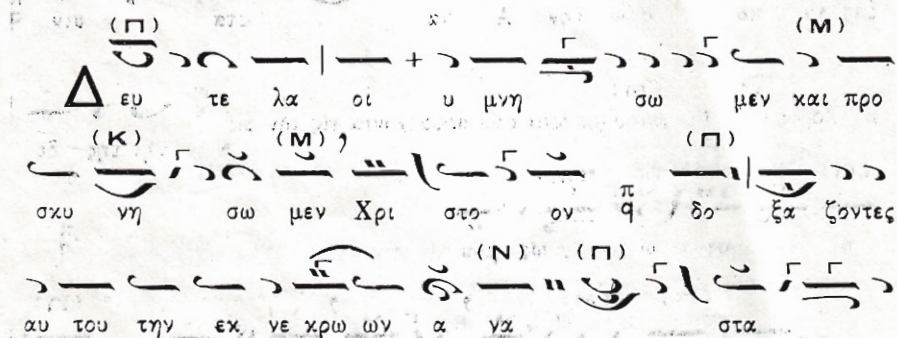 (Π) (Μ)
Δ ευ τε λα οι υ μνη σω μεν και προ
(Κ) (Μ) (Π)
σκυ νη σω μεν Χρι στο ον π q δο ξα ζοντες
(Ν) (Π)
αυ του την εκ νε κρω ων α να στα